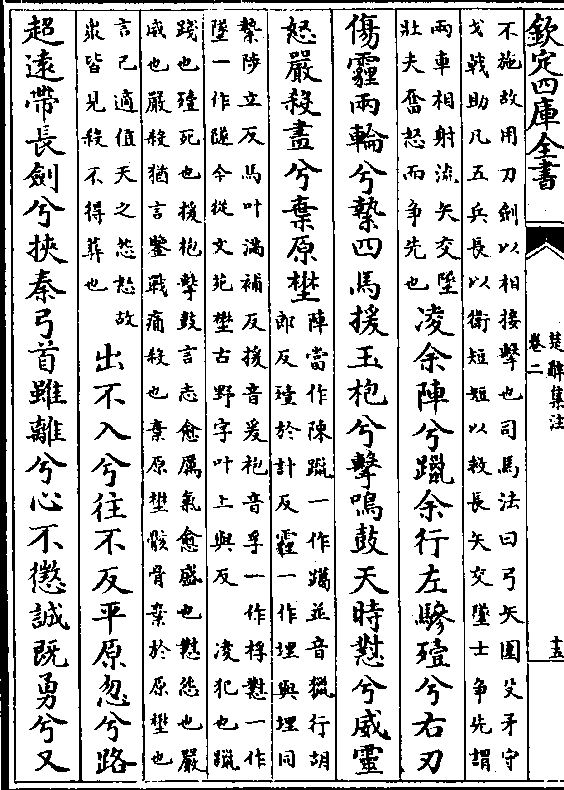 欽定四庫全書
楚辭集注
卷二
十五
不施故用刀劍以相接擊也司馬法曰弓矢圍殳矛守
戈戟助凡五兵長以衛短短以救長矢交墜士争先謂
兩車相射流矢交墜
壯夫奮怒而争先也
凌余陣兮躐余行左驂殪兮右刃
傷霾兩輪兮縶四馬援玉枹兮擊鳴鼓天時懟兮威靈
怒嚴殺盡兮棄原壄
陣當作陳躐一作躝並音獵行胡
郎反殪於計反霾一作埋與埋同
縶陟立反馬叶滿補反援音爰枹音孚一作桴懟一作
墜一作隧今從文苑壄古野字叶上與反　凌犯也躐
踐也殪死也援枹擊鼓言志愈厲氣愈盛也懟怨也嚴
威也嚴殺猶言鏖戰痛殺也棄原壄骸骨棄於原壄也
言己適值天之怨怒故
衆皆見殺不得葬也
出不入兮往不反平原忽兮路
超遠帶長劍兮挾秦弓首雖離兮心不懲誠既勇兮又